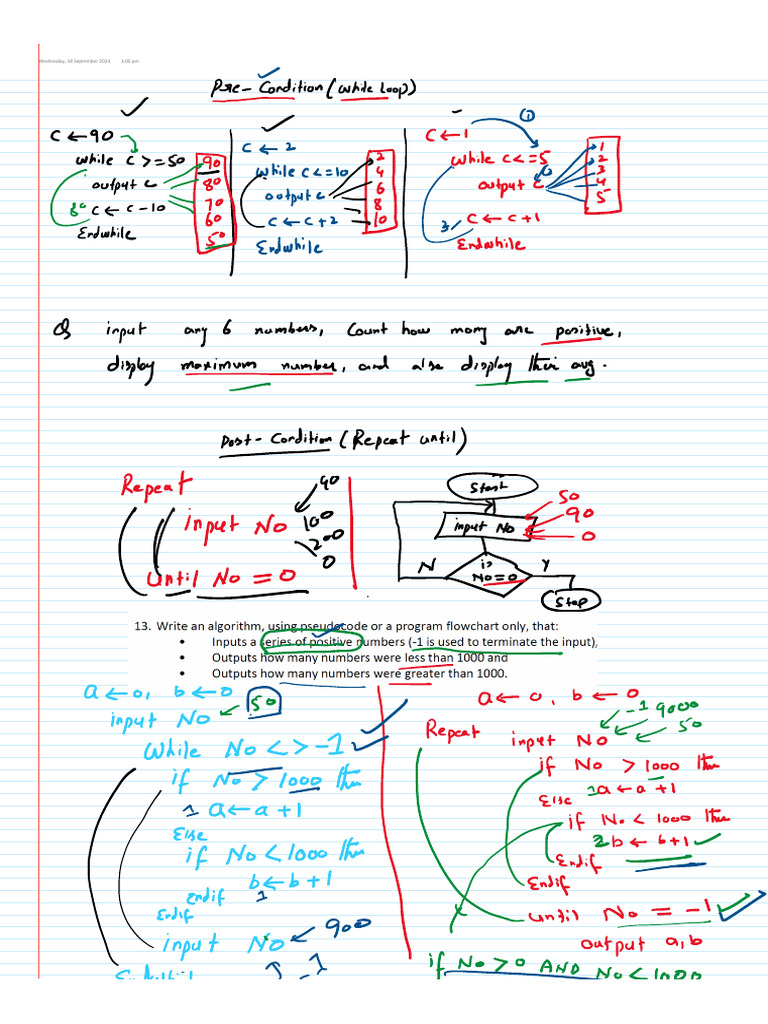 Wednesday, 18 September 2024 3:05 pm
Pre-Condition (while Loop)
C ← 90
while C >= 50
output C
80 C ← C - 10
Endwhile
90
80
70
60
50
C ← 2
while C <= 10
output C
C ← C + 2
Endwhile
2
4
6
8
10
C ← 1
①
while C <= 5
output C
C ← C + 1
Endwhile
1
2
3
4
5
Q input any 6 numbers, Count how many are positive,
display maximum number, and also display their avg.
Post-Condition (Repeat until)
Repeat
input No
until No = 0
90
100
200
0
Start
input No
is
No=0
N
Y
Stop
50
90
0
13. Write an algorithm, using pseudocode or a program flowchart only, that:
• Inputs a series of positive numbers (-1 is used to terminate the input),
• Outputs how many numbers were less than 1000 and
• Outputs how many numbers were greater than 1000.
a ← 0, b ← 0
input No ← 50
while No <> -1
if No > 1000 then
1 a ← a + 1
Else
if No < 1000 then
b ← b + 1
endif 1
Endif
input No ← 900
-1
a ← 0, b ← 0
-1 9000
50
Repeat input No
if No > 1000 then
1 a ← a + 1
Else
if No < 1000 then
2 b ← b + 1
Endif
Endif
until No = -1
output a, b
if No > 0 AND No < 1000